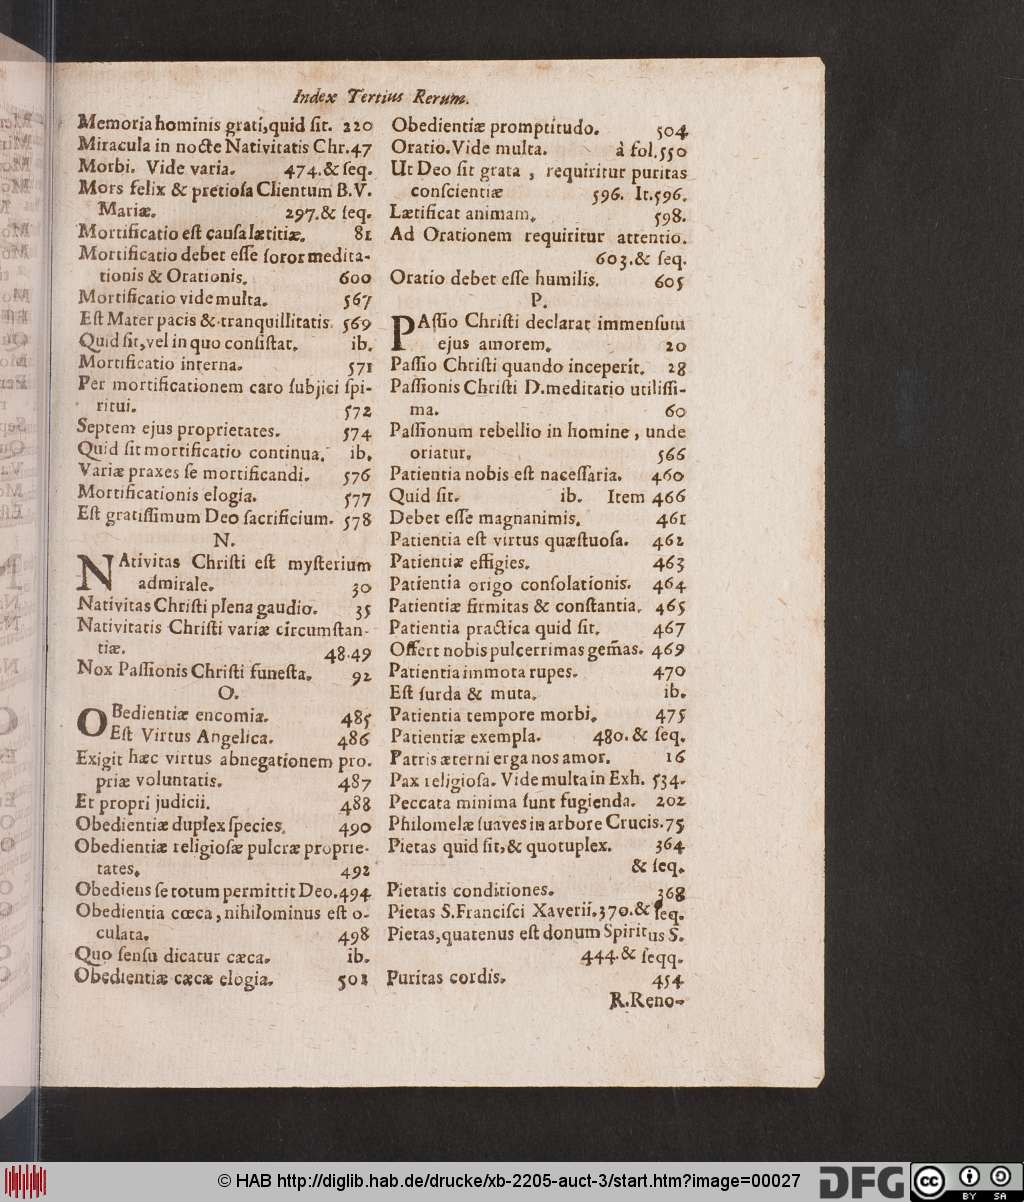 Index Tertius Rerum.
Memoria hominis grati, quid ſit. 220
Miracula in nocte Nativitatis Chr. 47
Morbi. Vide varia. 474. & ſeq.
Mors felix & pretioſa Clientum B. V.
Mariæ. 297. & ſeq.
Mortificatio eſt cauſa lætitiæ. 81
Mortificatio debet eſſe ſoror medita-
tionis & Orationis. 600
Mortificatio vide multa. 567
Eſt Mater pacis & tranquillitatis. 569
Quid ſit, vel in quo conſiſtat. ib.
Mortificatio interna. 571
Per mortificationem caro ſubjici ſpi-
ritui. 572
Septem ejus proprietates. 574
Quid ſit mortificatio continua. ib.
Variæ praxes ſe mortificandi. 576
Mortificationis elogia. 577
Eſt gratiſſimum Deo ſacrificium. 578
N.
NAtivitas Chriſti eſt myſterium
admirale. 30
Nativitas Chriſti plena gaudio. 35
Nativitatis Chriſti variæ circumſtan-
tiæ. 48. 49
Nox Paſſionis Chriſti funeſta. 92
O.
OBedientiæ encomia. 485
Eſt Virtus Angelica. 486
Exigit hæc virtus abnegationem pro-
priæ voluntatis. 487
Et propri judicii. 488
Obedientiæ duplex ſpecies. 490
Obedientiæ religioſæ pulcræ proprie-
tates. 492
Obediens ſe totum permittit Deo. 494
Obedientia cœca, nihilominus eſt o-
culata. 498
Quo ſenſu dicatur cæca. ib.
Obedientiæ cæcæ elogia. 501
Obedientiæ promptitudo. 504
Oratio. Vide multa. à fol. 550
Ut Deo ſit grata, requiritur puritas
conſcientiæ 596. It. 596.
Lætificat animam. 598.
Ad Orationem requiritur attentio.
603. & ſeq.
Oratio debet eſſe humilis. 605
P.
PAſſio Chriſti declarat immenſum
ejus amorem. 20
Paſſio Chriſti quando inceperit. 28
Paſſionis Chriſti D. meditatio utiliſſi-
ma. 60
Paſſionum rebellio in homine, unde
oriatur. 566
Patientia nobis eſt naceſſaria. 460
Quid ſit. ib. Item 466
Debet eſſe magnanimis. 461
Patientia eſt virtus quæſtuoſa. 462
Patientiæ effigies. 463
Patientia origo conſolationis. 464
Patientiæ firmitas & conſtantia. 465
Patientia practica quid ſit. 467
Offert nobis pulcerrimas gem̃as. 469
Patientia immota rupes. 470
Eſt ſurda & muta. ib.
Patientia tempore morbi. 475
Patientiæ exempla. 480. & ſeq.
Patris æterni erga nos amor. 16
Pax religioſa. Vide multa in Exh. 534.
Peccata minima ſunt fugienda. 202
Philomelæ ſuaves in arbore Crucis. 75
Pietas quid ſit, & quotuplex. 364
& ſeq.
Pietatis conditiones. 368
Pietas S. Franciſci Xaverii. 370. & ſeq.
Pietas, quatenus eſt donum Spiritus S.
444. & ſeqq.
Puritas cordis. 454
R. Reno-
© HAB http://diglib.hab.de/drucke/xb-2205-auct-3/start.htm?image=00027
DFG
cc BY SA